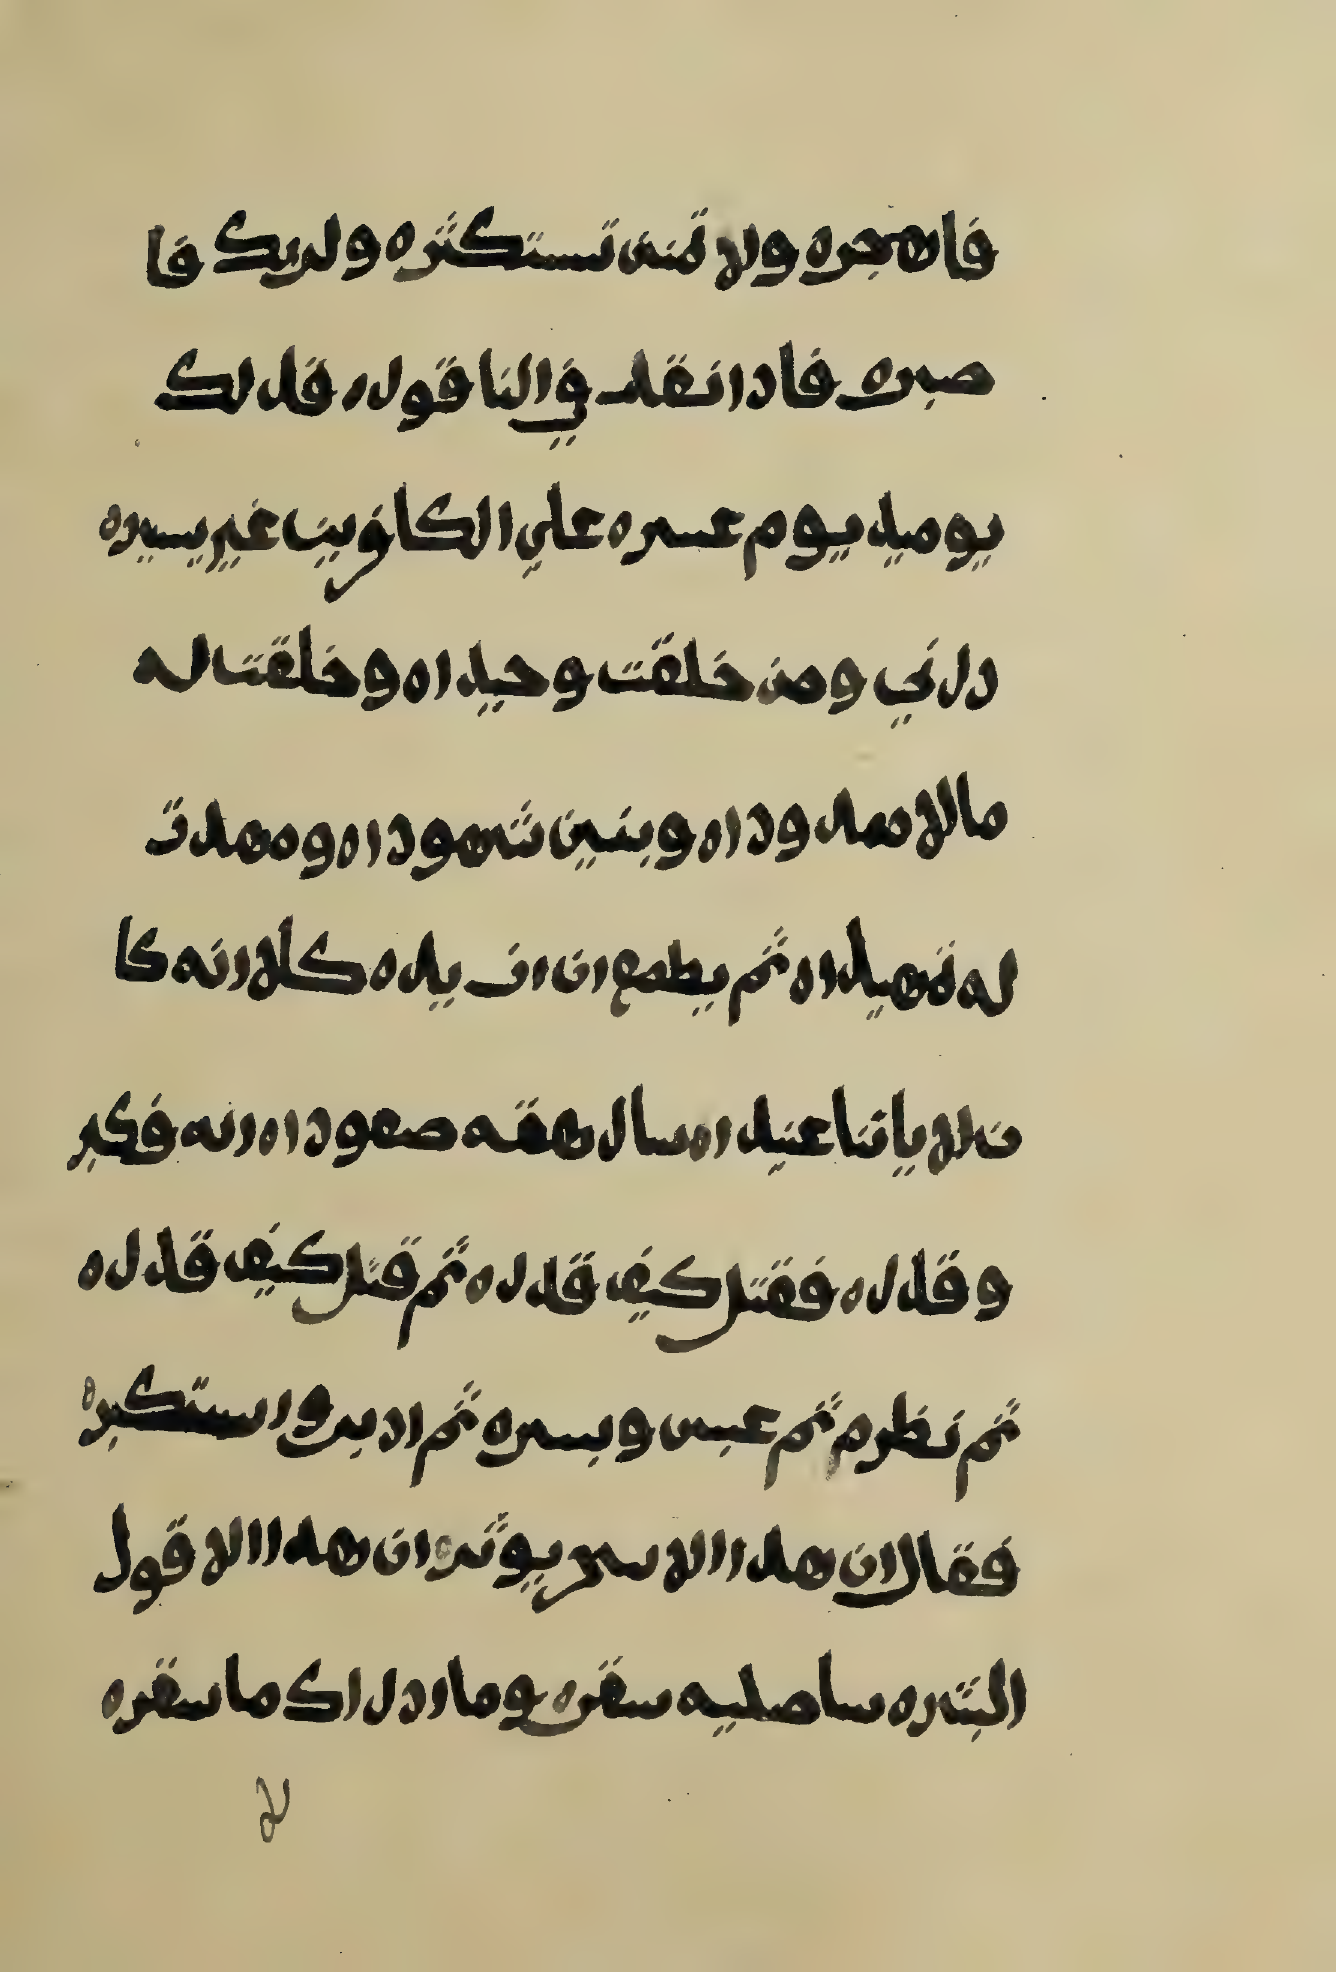 فاهجره ولا تمنن تستكثره ولربك فا
صبره فادا نقد في النا قوله قد لك
يوميد يوم عسره علي الكافرين غير يسيره
درني ومن خلقت وحيداه وخلقتاله
مالا ممدوداه وبنين شهوداه ومهدت
له تمهيداه ثم يطمع ان ان يده كلا انه كا
نلا ياتنا عنيداه سال هقه صعوداه انه فكبر
وقدره فقتل كيف قدره ثم قتل كيف قدره
ثم نظر م ثم عبس وبسره ثم ادبر واستكبره
فقال ان هدا الا سحر يوثره ان هدا الا قول
البشره ساصليه سقره وما ادراك ما سقره
لا